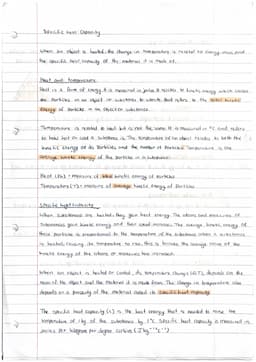 Specific Heat Capacity
When an object is heated, the change in temperature is related to energy, mass and
the specific heat capacity of the material it is made of.
Heat and Temperature
Heat is a form of energy. It is measured in joules. It relates to kinetic energy which causes
the particles in an object or substance to vibrate. Heat refers to the total kinetic
energy of particles in the object or substance.
Temperature is related to heat but is not the same. It is measured in °C and refers
to how hot or cold a substance is. The temperature of an object relates to both the
kinetic energy of its particles and the number of particles. Temperature is the
average kinetic energy of the particles in a substance.
Heat = measure of total kinetic energy of particles
Temperature = measure of average kinetic energy of particles
Specific Heat
When substances are heated, they gain heat energy. The atoms and molecules of
substances gain kinetic energy and their speed increases. The average kinetic energy of
these particles is proportional to the temperature of the substance. When a substance
is heated, causing its temperature to rise, this is because the average value of the
kinetic energy of the atoms or molecules has increased.
When an object is heated or cooled, its temperature change (ΔT), depends on the
mass of the object and the material it is made from. The change in temperature also
depends on a property of the material called its specific heat capacity.
The specific heat capacity (c) is the heat energy that is needed to raise the
temperature of 1kg of the substance by 1°C. Specific heat capacity is measured in
joules per kilogram per degree Celsius (Jkg⁻¹°C⁻¹)